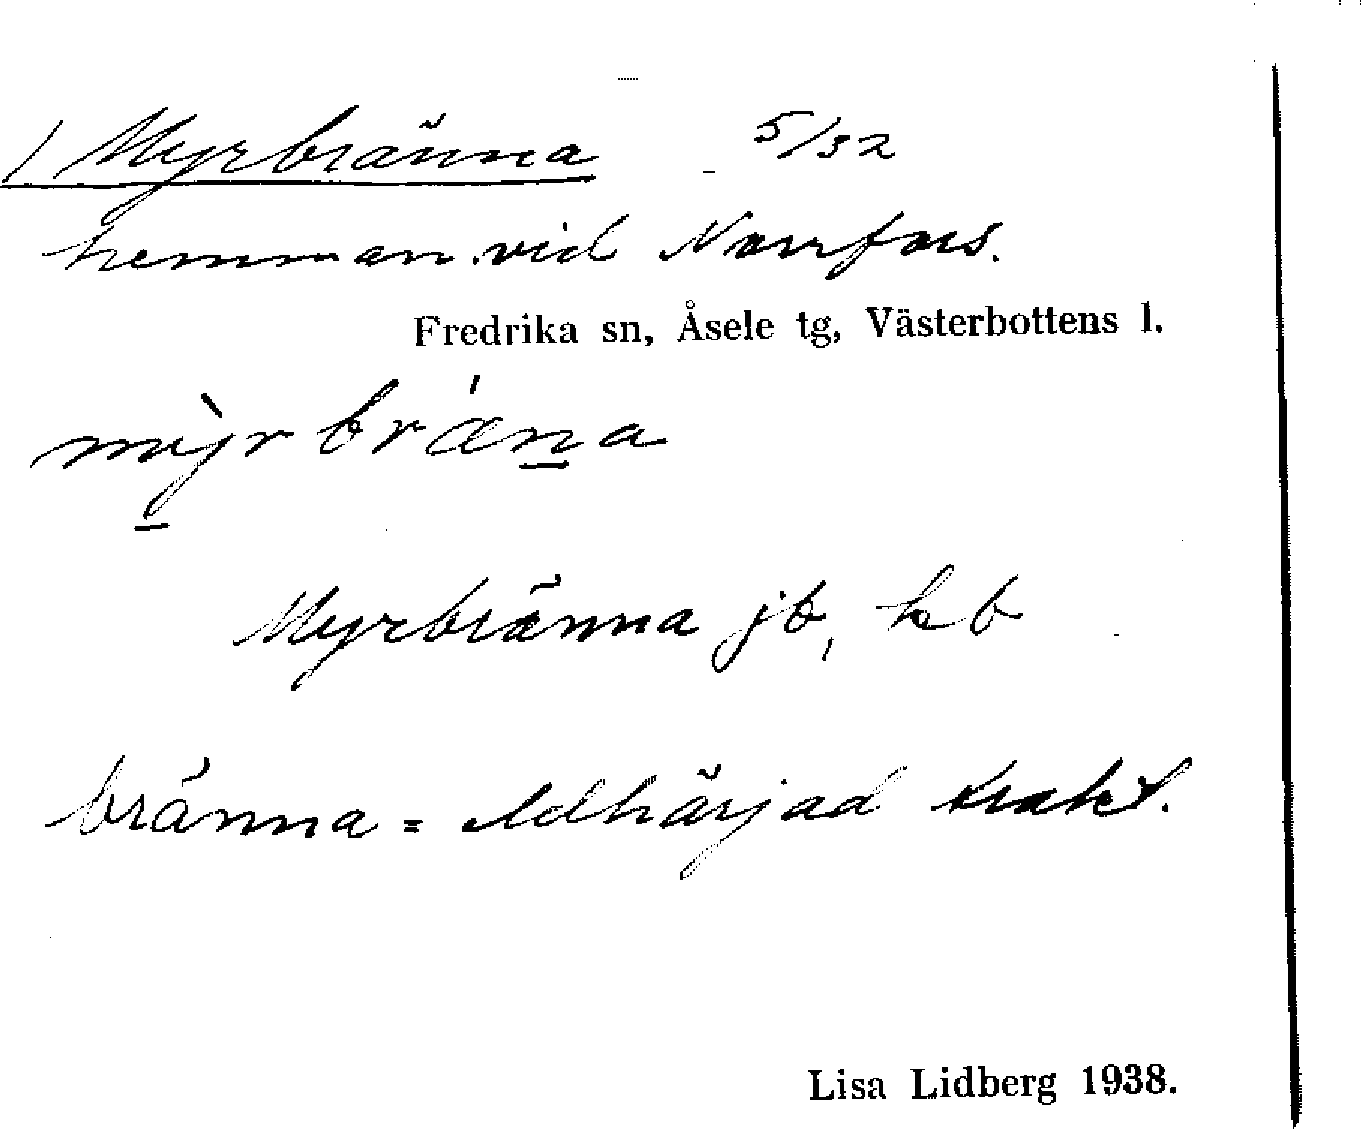 / Myrbränna 5/32
hemman vid Norrfors.
Fredrika sn, Åsele tg, Västerbottens l.
mỳ̱rbrǽṉa
Myrbränna jb, hb
bränna = eldhärjad trakt.
Lisa Lidberg 1938.